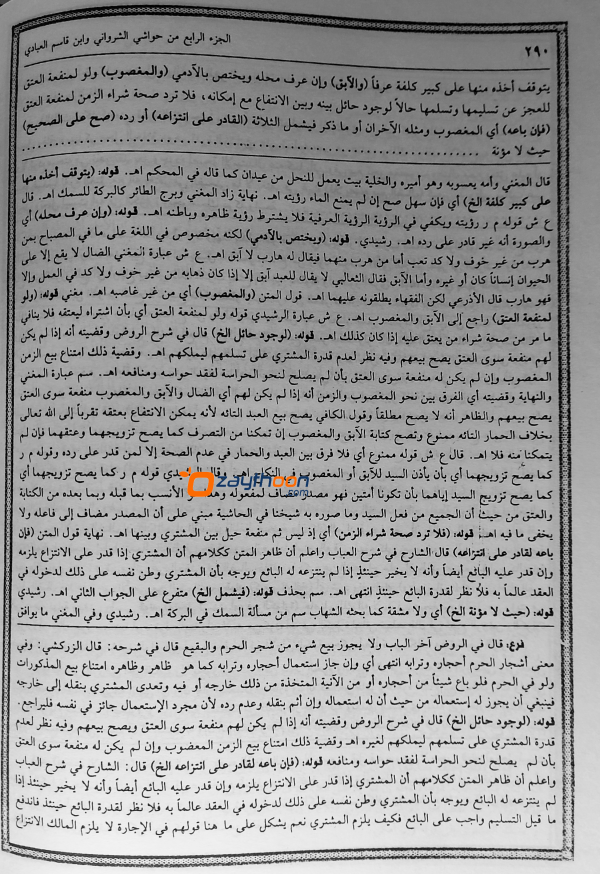 ٢٩٠
الجزء الرابع من حواشي الشرواني وابن قاسم العبادي
يتوقف أخذه منها على كبير كلفة عرفاً (والآبق) وإن عرف محله ويختص بالآدمي (والمغصوب) ولو لمنفعة العتق
للعجز عن تسليمها وتسلمها حالاً لوجود حائل بينه وبين الانتفاع مع إمكانه، فلا ترد صحة شراء الزمن لمنفعة العتق
(فإن باعه) أي المغصوب ومثله الآخران أو ما ذكر فيشمل الثلاثة (القادر على انتزاعه) أو رده (صح على الصحيح)
حيث لا مؤنة
قال المغني وأمه يعسوبه وهو أميره والخلية بيت يعمل للنحل من عيدان كما قاله في المحكم اهـ. قوله: (يتوقف أخذه منها
على كبير كلفة الخ) أي فإن سهل صح إن لم يمنع الماء رؤيته اهـ. نهاية زاد المغني وبرج الطائر كالبركة للسمك اهـ. قال
ع ش قوله م ر رؤيته ويكفي في الرؤية الرؤية العرفية فلا يشترط رؤية ظاهره وباطنه اهـ. قوله: (وإن عرف محله) أي
والصورة أنه غير قادر على رده اهـ. رشيدي. قوله: (ويختص بالآدمي) لكنه مخصوص في اللغة على ما في المصباح بمن
هرب من غير خوف ولا كد تعب أما من هرب منهما فيقال له هارب لا آبق اهـ. ع ش عبارة المغني الضال لا يقع إلا على
الحيوان إنساناً كان أو غيره وأما الآبق فقال الثعالبي لا يقال للعبد آبق إلا إذا كان ذهابه من غير خوف ولا كد في العمل وإلا
فهو هارب قال الأذرعي لكن الفقهاء يطلقونه عليهما اهـ. قول المتن (والمغصوب) أي من غير غاصبه اهـ. مغني قوله: (ولو
لمنفعة العتق) راجع إلى الآبق والمغصوب اهـ. ع ش عبارة الرشيدي قوله ولو لمنفعة العتق أي بأن اشتراه ليعتقه فلا ينافي
ما مر من صحة شراء من يعتق عليه إذا كان كذلك اهـ. قوله: (لوجود حائل الخ) قال في شرح الروض وقضيته أنه إذا لم يكن
لهم منفعة سوى العتق يصح بيعهم وفيه نظر لعدم قدرة المشتري على تسلمهم ليملكهم اهـ. وقضية ذلك امتناع بيع الزمن
المغصوب وإن لم يكن له منفعة سوى العتق بأن لم يصلح لنحو الحراسة لفقد حواسه ومنافعه اهـ. سم عبارة المغني
والنهاية وقضيته أي الفرق بين نحو المغصوب والزمن أنه إذا لم يكن لهم أي الضال والآبق والمغصوب منفعة سوى العتق
يصح بيعهم والظاهر أنه لا يصح مطلقاً وقول الكافي يصح بيع العبد التائه لأنه يمكن الانتفاع بعتقه تقرباً إلى الله تعالى
بخلاف الحمار التائه ممنوع وتصح كتابة الآبق والمغصوب إن تمكنا من التصرف كما يصح تزويجهما وعتقهما فإن لم
يتمكنا منه فلا اهـ. قال ع ش قوله ممنوع أي فلا فرق بين العبد والحمار في عدم الصحة إلا لمن قدر على رده وقوله م ر
كما يصح تزويجهما أي بأن يأذن السيد للآبق أو المغصوب في النكاح اهـ. وقال الرشيدي قوله م ر كما يصح تزويجهما أي
كما يصح تزويج السيد إياهما بأن تكونا أمتين فهو مصدر مضاف لمفعوله وهذا هو الأنسب بما قبله وبما بعده من الكتابة
والعتق من حيث أن الجميع من فعل السيد وما صوره به شيخنا في الحاشية مبني على أن المصدر مضاف إلى فاعله ولا
يخفى ما فيه اهـ. قوله: (فلا ترد صحة شراء الزمن) أي إذ ليس ثم منفعة حيل بين المشتري وبينها اهـ. نهاية قول المتن (فإن
باعه لقادر على انتزاعه) قال الشارح في شرح العباب واعلم أن ظاهر المتن ككلامهم أن المشتري إذا قدر على الانتزاع يلزمه
وإن قدر عليه البائع أيضاً وأنه لا يخير حينئذٍ إذا لم ينتزعه له البائع ويوجه بأن المشتري وطن نفسه على ذلك لدخوله في
العقد عالماً به فلا نظر لقدرة البائع حينئذٍ انتهى اهـ. سم بحذف قوله: (فيشمل الخ) متفرع على الجواب الثاني اهـ. رشيدي
قوله: (حيث لا مؤنة الخ) أي ولا مشقة كما بحثه الشهاب سم من مسألة السمك في البركة اهـ. رشيدي وفي المغني ما يوافق
فرع: قال في الروض آخر الباب ولا يجوز بيع شيء من شجر الحرم والبقيع قال في شرحه: قال الزركشي: وفي
معنى أشجار الحرم أحجاره وترابه انتهى أي وإن جاز استعمال أحجاره وترابه كما هو ظاهر وظاهره امتناع بيع المذكورات
ولو في الحرم فلو باع شيئاً من أحجاره أو من الآنية المتخذة من ذلك خارجه أو فيه وتعدى المشتري بنقله إلى خارجه
فينبغي أن يجوز له إستعماله من حيث أن له استعماله وإن أثم بنقله وعدم رده لأن مجرد الإستعمال جائز في نفسه فليراجع.
قوله: (لوجود حائل الخ) قال في شرح الروض وقضيته أنه إذا لم يكن لهم منفعة سوى العتق ويصح بيعهم وفيه نظر لعدم
قدرة المشتري على تسلمهم ليملكهم لغيره اهـ وقضية ذلك امتناع بيع الزمن المغصوب وإن لم يكن له منفعة سوى العتق
بأن لم يصلح لنحو الحراسة لفقد حواسه ومنافعه قوله: (فإن باعه لقادر على انتزاعه الخ) قال: الشارح في شرح العباب
واعلم أن ظاهر المتن ككلامهم أن المشتري إذا قدر على الانتزاع يلزمه وإن قدر عليه البائع أيضاً وأنه لا يخير حينئذٍ إذا
لم ينتزعه له البائع ويوجه بأن المشتري وطن نفسه على ذلك لدخوله في العقد عالماً به فلا نظر لقدرة البائع حينئذ فاندفع
ما قيل التسليم واجب على البائع فكيف يلزم المشتري نعم يشكل على ما هنا قولهم في الإجارة لا يلزم المالك الانتزاع
zaythoon
.com